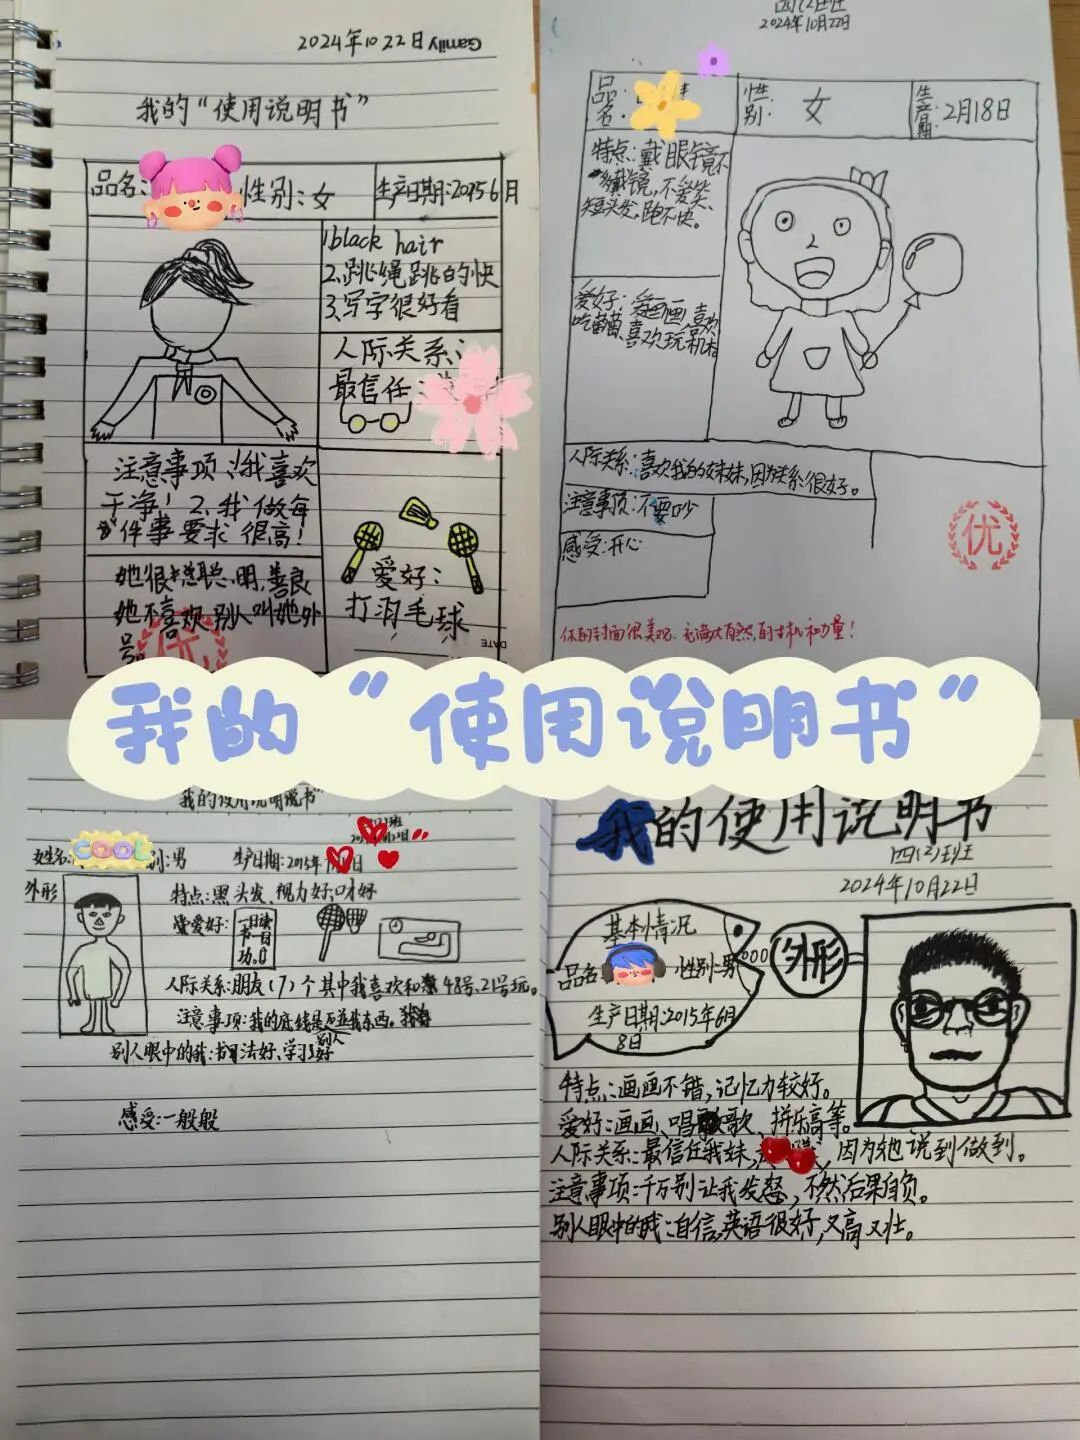 2024年10月22日
Gamily
我的“使用说明书”
品名:
性别:女
生产日期:2015 6月
1.black hair
2.跳绳跳的快
3.写字很好看
人际关系:
最信任:
注意事项:1.我喜欢
干净! 2.我做每
件事要求很高!
爱好:
打羽毛球
她很聪明,善良
她不喜欢别人叫她外
号。
优
DATE
四(2)班
2024年10月22日
品名:
性别:
女
生产日期:
2月18日
特点:戴眼镜不
戴镜,不爱笑、
短头发,跑不快。
爱好:爱画画,喜欢
吃苗苗、喜欢玩机
人际关系:喜欢我的妹妹,因为关系很好。
注意事项:不要吵
感受:开心
优
你的封面很美观、充满大自然的生机和力量!
我的“使用说明书”
我的使用说明书”
生产日期:2015年
别:男
外形
特点:黑头发、视力好,口才好
爱好:
一日读
书一日
功。
人际关系:朋友(7)个其中我喜欢和48号、21号玩。
注意事项:我的底线是别人
别人眼中的我:书法好、学习好
感受:一般般
我的使用说明书
四(2)班
2024年10月22日
基本情况
品名
性别:男
生产日期:2015年6月
8日
外形
特点:画画不错,记忆力较好。
爱好:画画、唱歌、拼乐高等。
人际关系:最信任我妹,
因为她说到做到。
注意事项:千万别让我发怒,不然后果自负。
别人眼中的我:自信,英语很好,又高又壮。
COOL